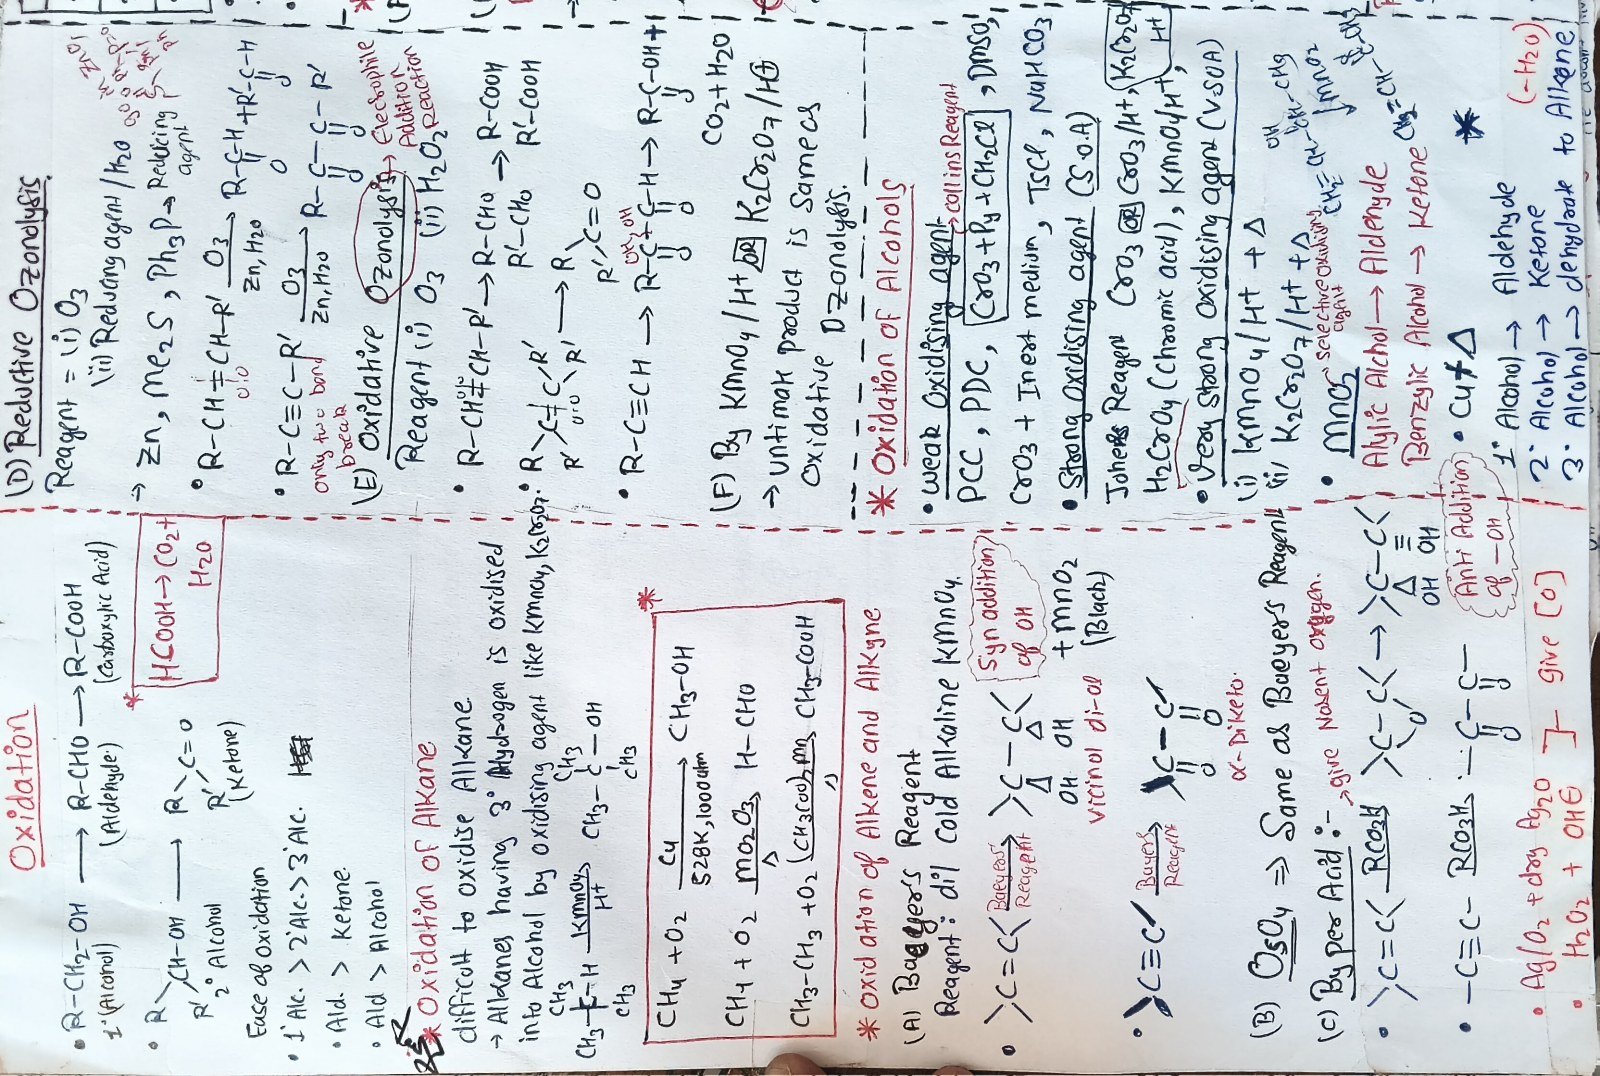 Oxidation
• R-CH2-OH ⟶ R-CHO ⟶ R-COOH
1°(Alcohol) (Aldehyde) (Carboxylic Acid)
• R
R' CH-OH ⟶ R
R' C=O
2° Alcohol (Ketone)
* HCOOH→CO2+
H2O
Ease of oxidation
• 1° Alc. > 2° Alc. > 3° Alc.
• Ald. > Ketone
• Ald > Alcohol
* Oxidation of Alkane
difficult to oxidise Alkane.
→ Alkanes having 3° Hydrogen is oxidised
into Alcohol by oxidising agent like KmnO4, K2Cr2O7.
CH3 CH3
CH3-C-H KmnO4 / H+ → CH3-C-OH
CH3 CH3
*
CH4 + O2 Cu / 528K, 100atm → CH3-OH
CH4 + O2 mo2O3 / Δ → H-CHO
CH3-CH3 + O2 (CH3COO)2mn / Δ → CH3-COOH
* Oxidation of Alkene and Alkyne
(A) Baeyer's Reagent
Reagent: dil Cold Alkaline KmnO4.
• >C=C< Baeyers Reagent → >C-C< + mnO2
OH OH (Black)
Syn addition
of OH
vicinal di-al
• C≡C Baeyers Reagent → C-C
O O
α-Diketo.
(B) OsO4 ⇒ Same as Baeyers Reagent
(C) By per Acid :- →give Nascent oxygen.
• >C=C< RCO3H → >C-C< → >C-C<
O OH OH
Anti Addition
of -OH
• -C≡C- RCO3H → -C-C-
O O
• Ag/O2 + dry Ag2O
• H2O2 + OH⊖ ] give [O]
(D) Reductive Ozonolysis.
Reagent = (i) O3
(ii) Reducing agent / H2O
⇒ Zn, me2S, Ph3P → Reducing
agent
• R-CH=CH-R' O3 / Zn, H2O → R-C-H + R'-C-H
O O
• R-C≡C-R' O3 / Zn, H2O → R-C-C-R'
O O
only two bond
break
(E) Oxidative Ozonolysis → Electrophile
Addition
Reaction
Reagent (i) O3 (ii) H2O2
• R-CH=CH-R' → R-CHO → R-COOH
R'-CHO R'-COOH
• R
R' C=C R'
R' ⟶ R
R' C=O
• R-C≡CH ⟶ R-C+C-H → R-C-OH +
O O O
CO2 + H2O
(F) By KmnO4/H+ OR K2Cr2O7/H⊕
→ untimate product is Same as
Oxidative Ozonolysis.
* Oxidation of Alcohols
• weak Oxidising agent → collins Reagent
PCC, PDC, CrO3 + Py + CH2Cl, DMSO,
CrO3 + Inert medium, TsCl, NaHCO3
• Strong oxidising agent (S.O.A)
Johens Reagent CrO3 OR CrO3/H+, K2Cr2O7
H+
H2CrO4 (Chromic acid), KmnO4/H+,
• very strong oxidising agent (VSOA)
(i) KmnO4/H+ + Δ
(ii) K2Cr2O7/H+ + Δ
• mnO2 → selective oxidising
agent
OH
CH2=CH-CH-CH3
↓mnO2
CH2=CH-C-CH3
O
Alylic Alchol → Aldehyde
Benzylic Alcohol → Ketone
• Cu/Δ *
1° Alcohol → Aldehyde
2° Alcohol → Ketone
3° Alcohol → dehydrate to Alkene (-H2O)